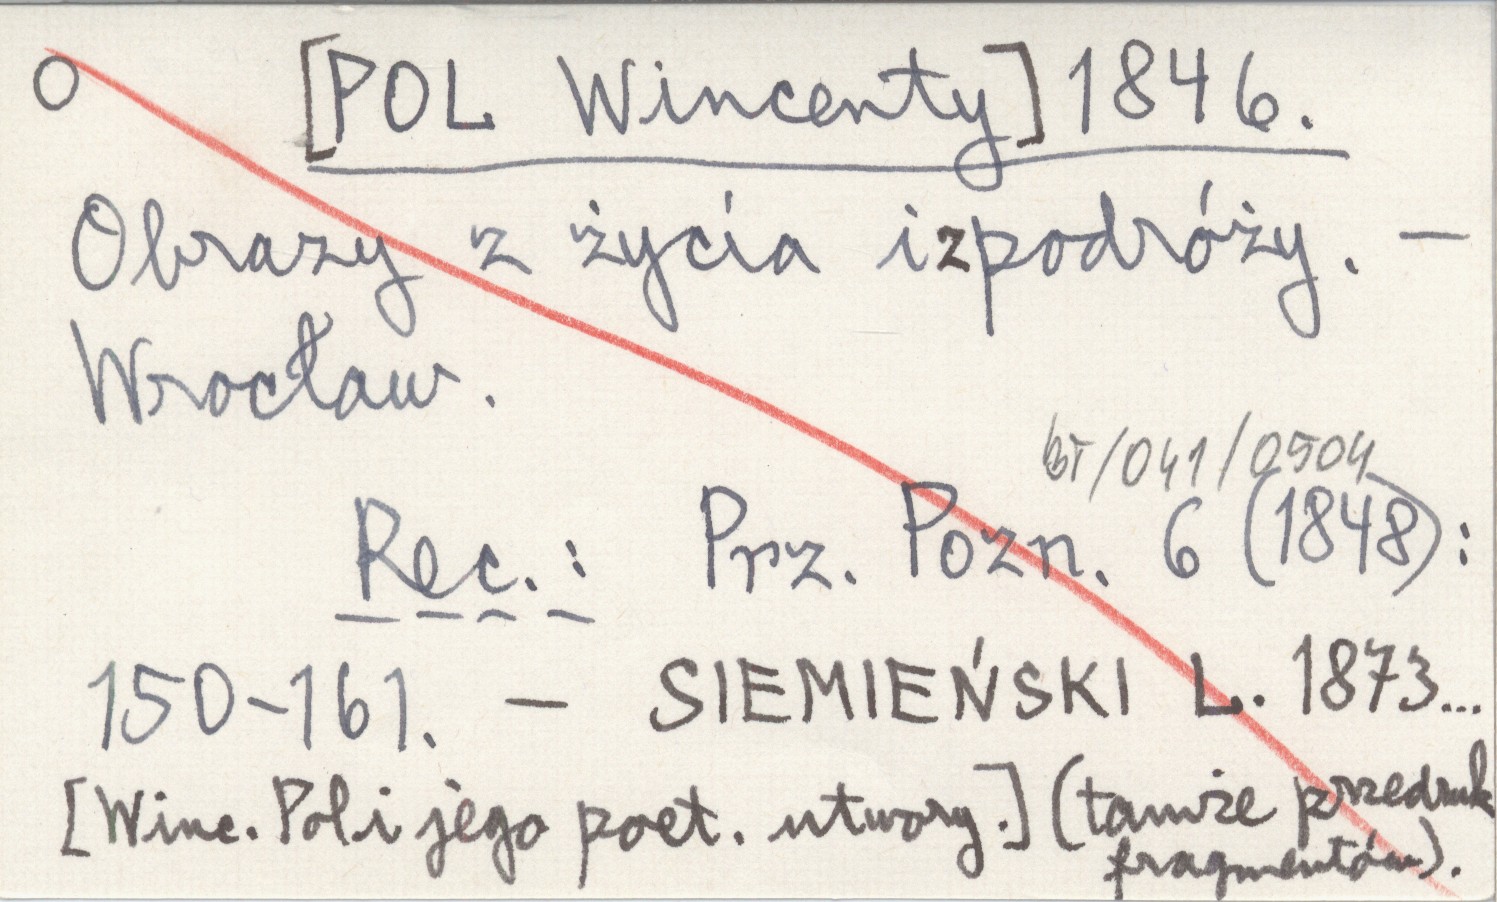 O [POL Wincenty] 1846.
Obrazy z życia i z podróży. —
Wrocław.
BT/041/0504
Rec.: Prz. Pozn. 6 (1848):
150-161. — SIEMIEŃSKI L. 1873...
[Winc. Pol i jego poet. utwory.] (tamże przedruk
fragmentów).